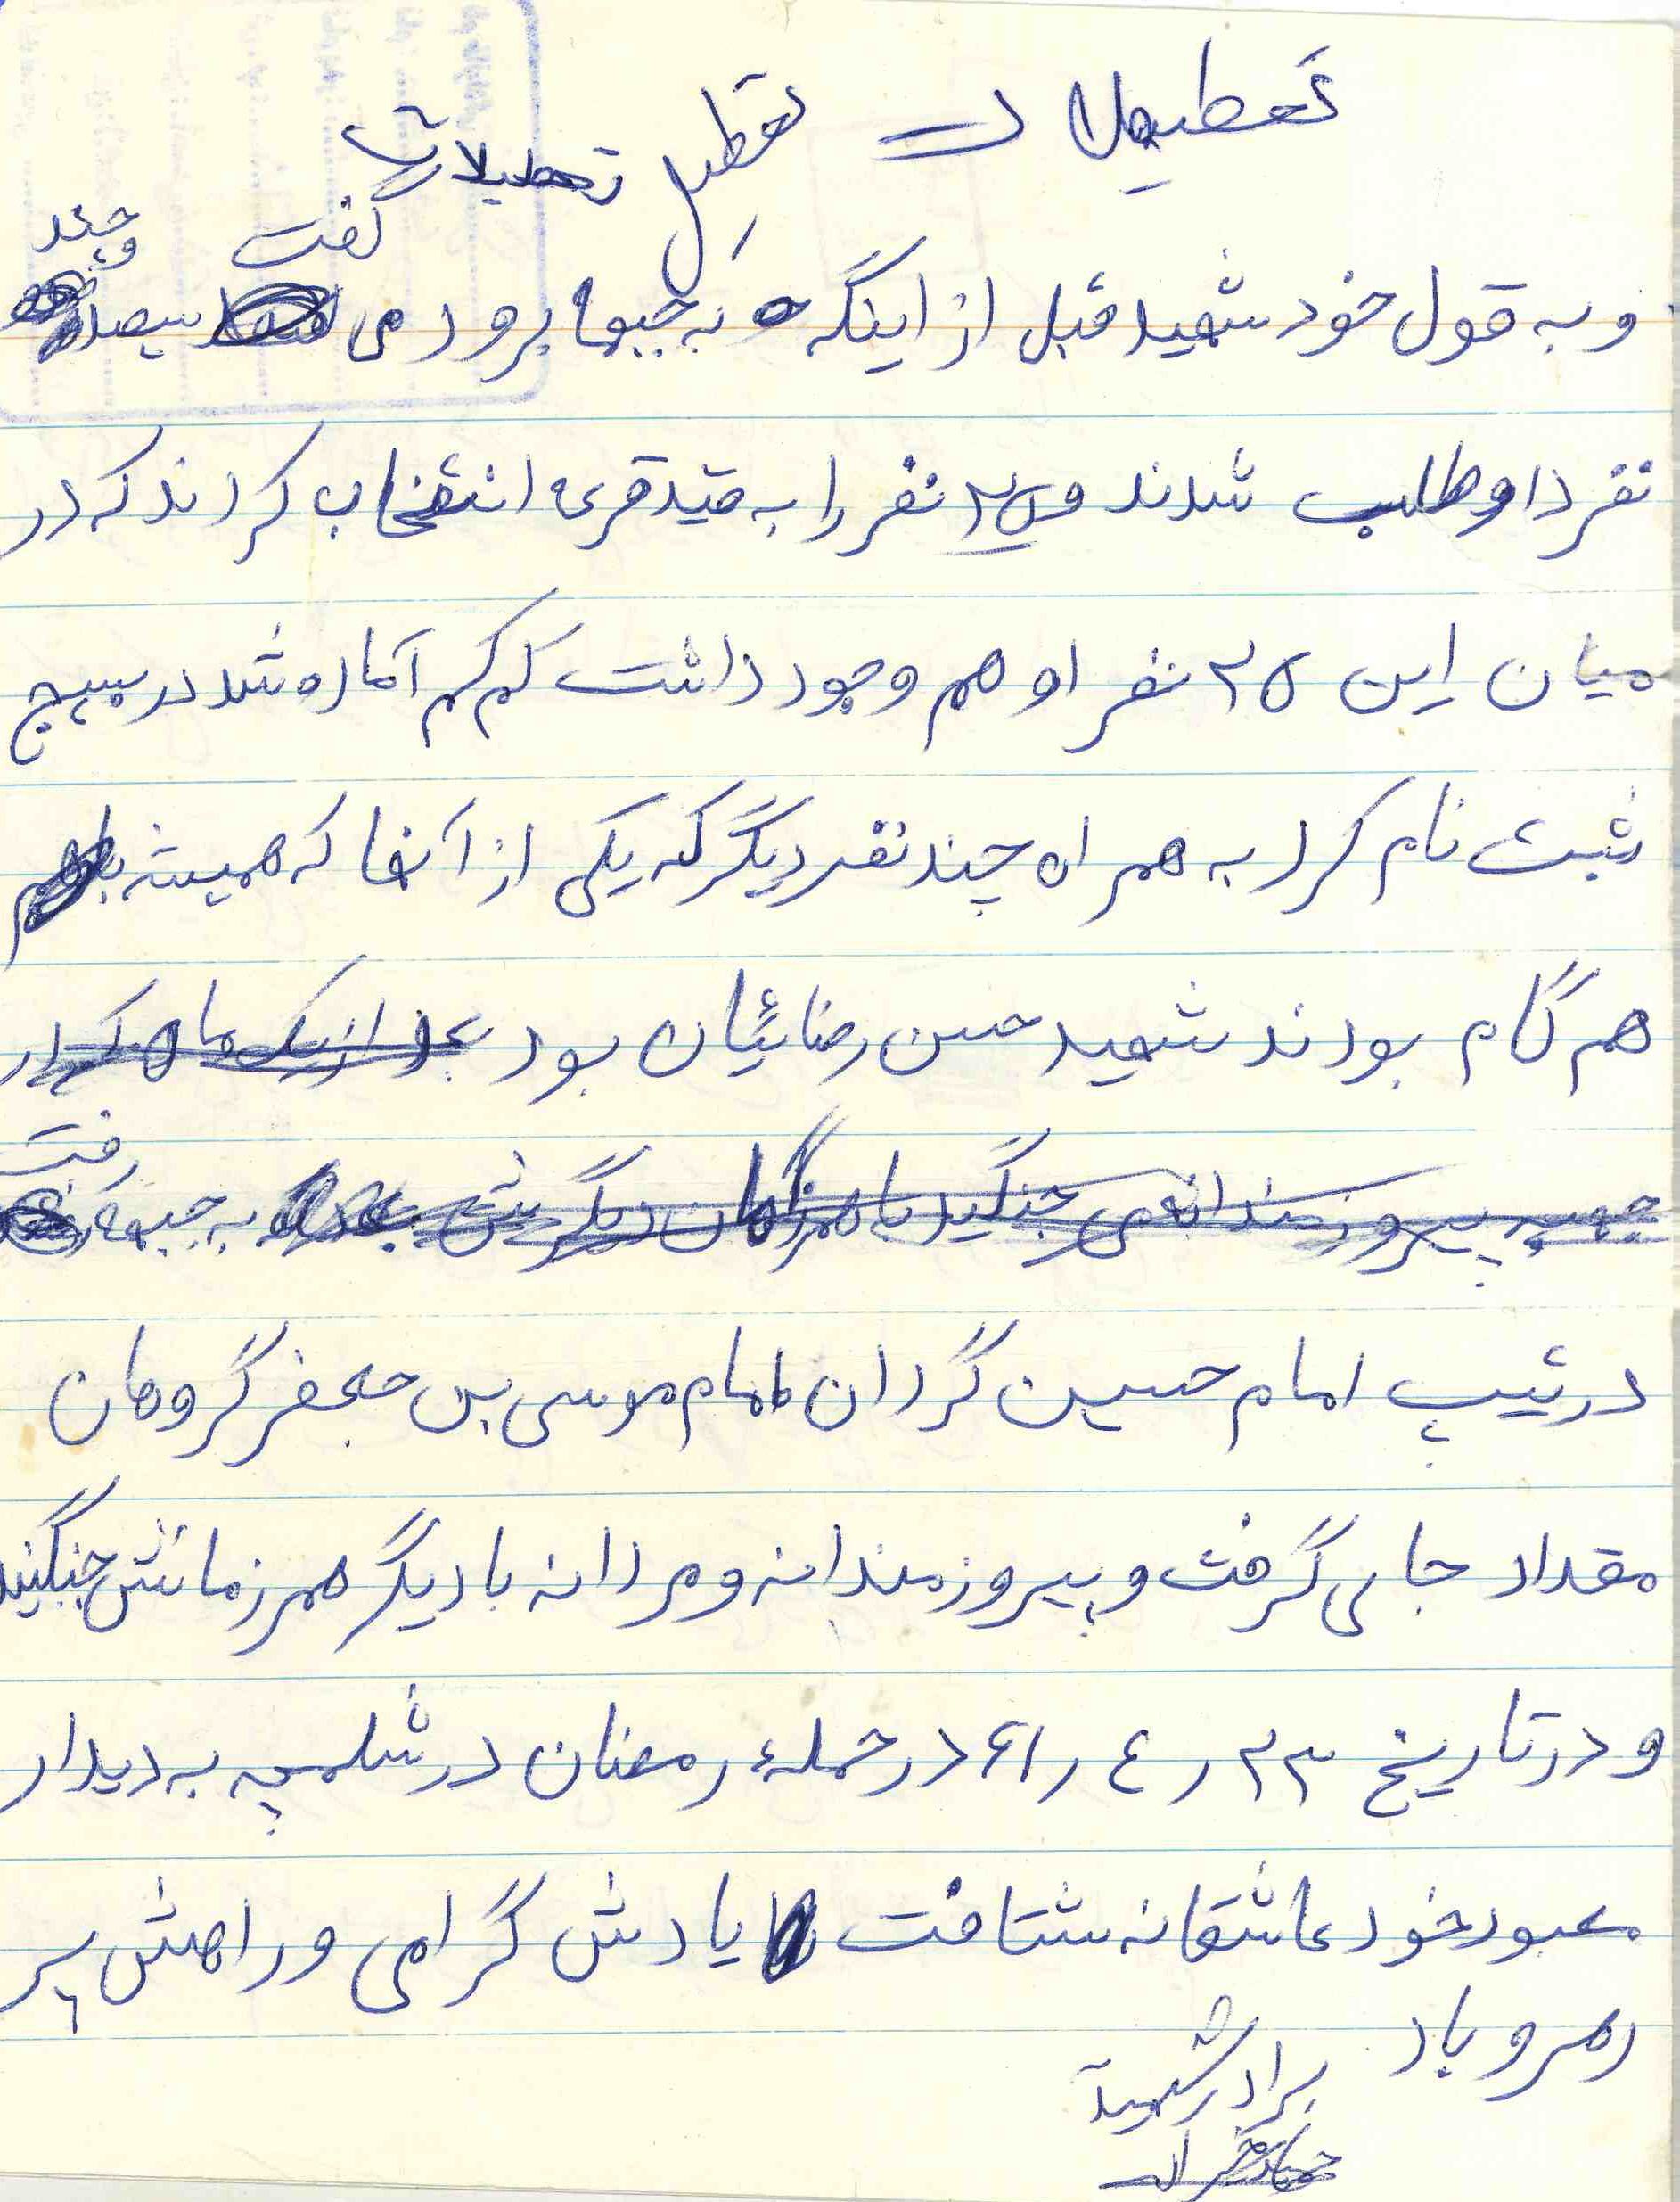 تعطیلات تعطیل تعطیلات
گفت و چند
و به قول خود شهید قبل از اینکه به جبهه برود می سیصد
نفر داوطلب شدند و ۲۵ نفر را به قید قرعه انتخاب کردند که در
میان این ۲۵ نفر او هم وجود داشت کم کم آماده شد در بسیج
ثبت نام کرد به همراه چند نفر دیگر که یکی از آنها که همیشه با هم
هم گام بودند شهید حسن رضائیان بود بعد از یک ماه که در
رفت
جبهه پیروزمندانه می جنگید با همرزمان دیگرش به جبهه
در تیپ امام حسین گردان امام موسی بن جعفر گروهان
مقداد جای گرفت و پیروزمندانه و مردانه با دیگر همرزمانش جنگیند
و در تاریخ ۲۳ ر ٤ ر ۶۱ در حملهٔ رمضان در شلمچه به دیدار
معبود خود عاشقانه شتافت یادش گرامی و راهش پر
رهرو باد
برادر شهید